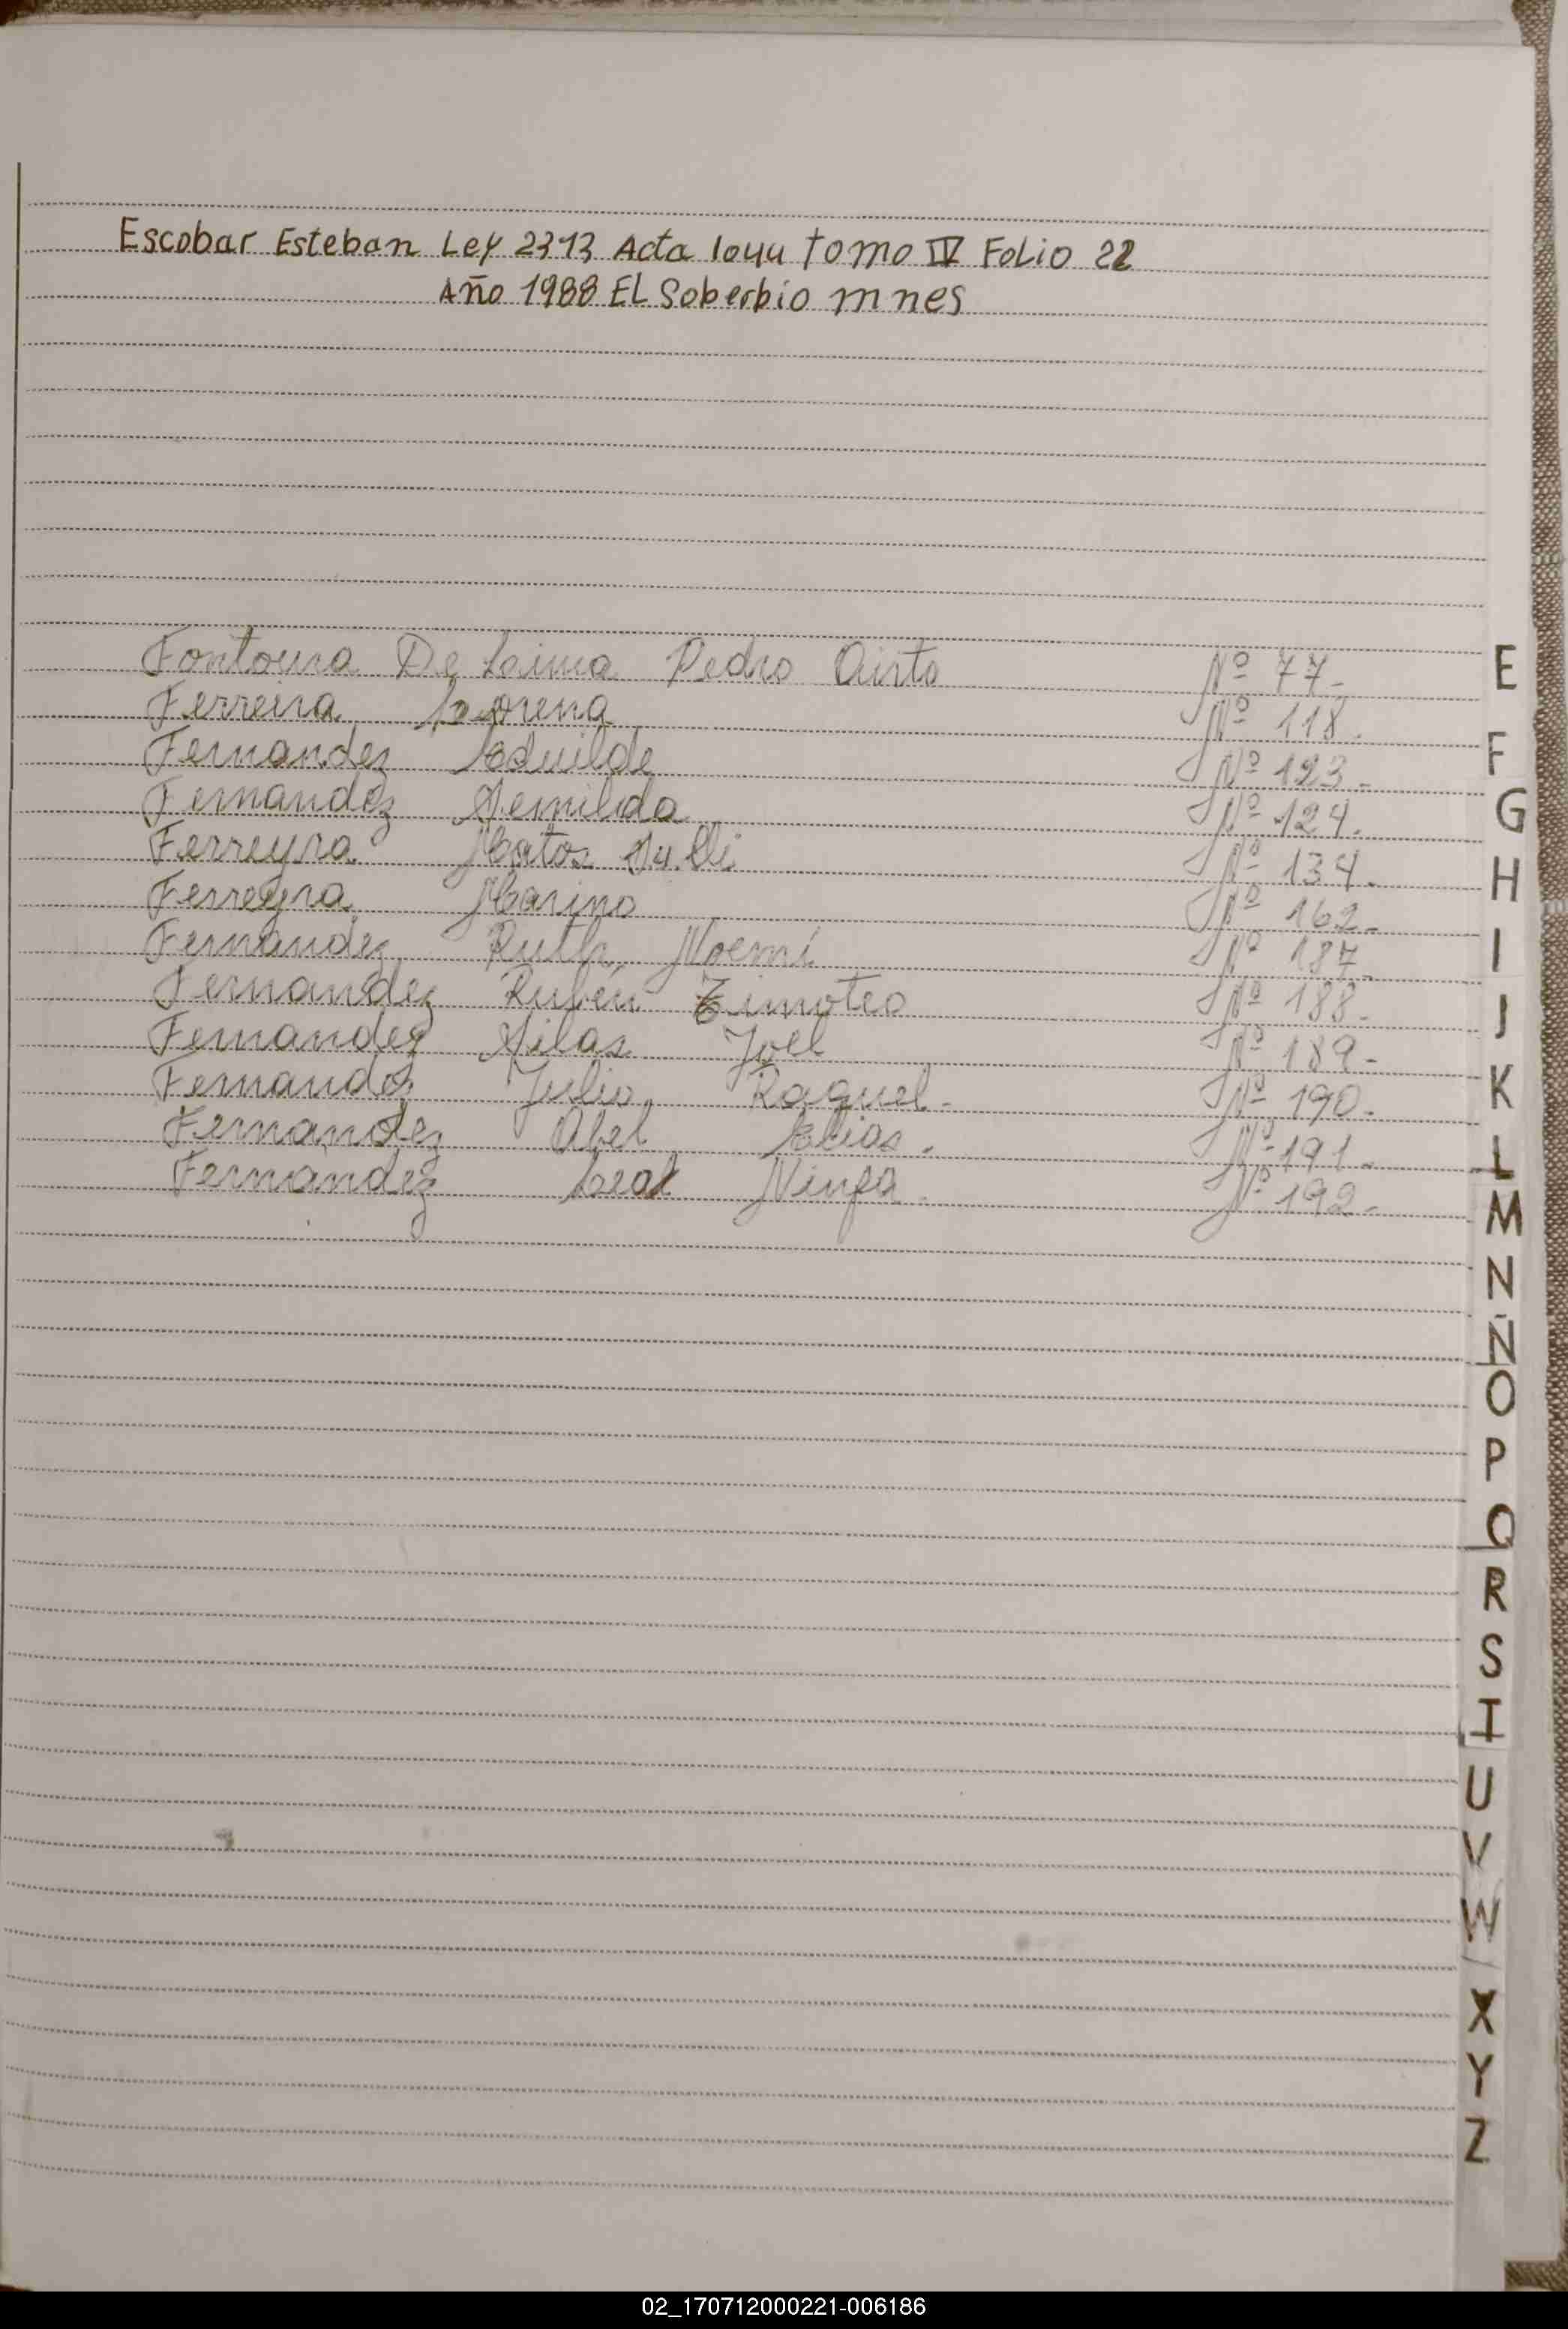 Escobar Esteban Ley 2373 Acta 1044 tomo IV Folio 22
Año 1988 EL Soberbio mnes
Fontoura De Laima Pedro Airto Nº 77-
Ferreira Lorena Nº 118.
Fernandez Edvilde Nº 123-
Fernandez Semilda Nº 124.
Ferreyra Matos Nº 134-
Ferreyra Marino Nº 162-
Fernandez Ruth Noemí Nº 187
Fernandez Rubén Timoteo Nº 188-
Fernandez Silas Joel Nº 189-
Fernandez Julia Raquel- Nº 190-
Fernandez Abel Elias. Nº 191-
Fernandez Leal Ninfa. Nº 192-
E
F
G
H
I
J
K
L
M
N
Ñ
O
P
Q
R
S
I
U
V
W
X
Y
Z
02_170712000221-006186